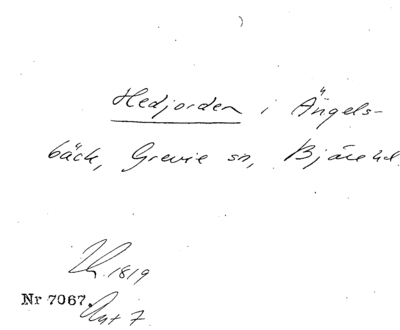 Hedjorden i Ängels-
bäck, Grevie sn, Bjäre hd.
1819
Nr 7067. Akt 7